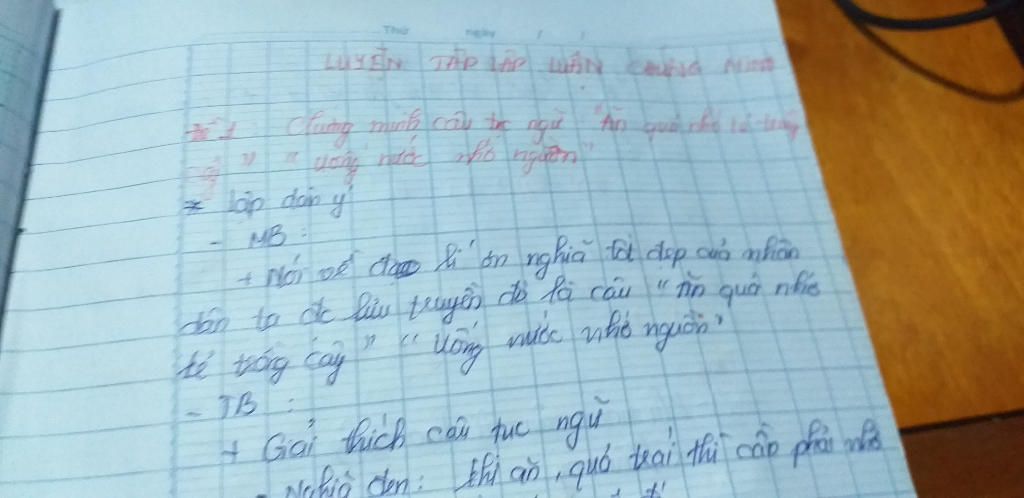 Thứ ngày / /
LUYỆN TẬP LẬP LUẬN CHỨNG MINH
Đề 1: Chứng minh câu tục ngữ "Ăn quả nhớ kẻ trồng
cây" "Uống nước nhớ nguồn"
* Lập dàn ý
- MB:
+ Nói về đạo lí ơn nghĩa tốt đẹp của nhân
dân ta đc lưu truyền đó là câu "Ăn quả nhớ
kẻ trồng cây" "Uống nước nhớ nguồn"
- TB:
+ Giải thích câu tục ngữ
Nghĩa đen: khi ăn, quả trái thì cần phải nhớ